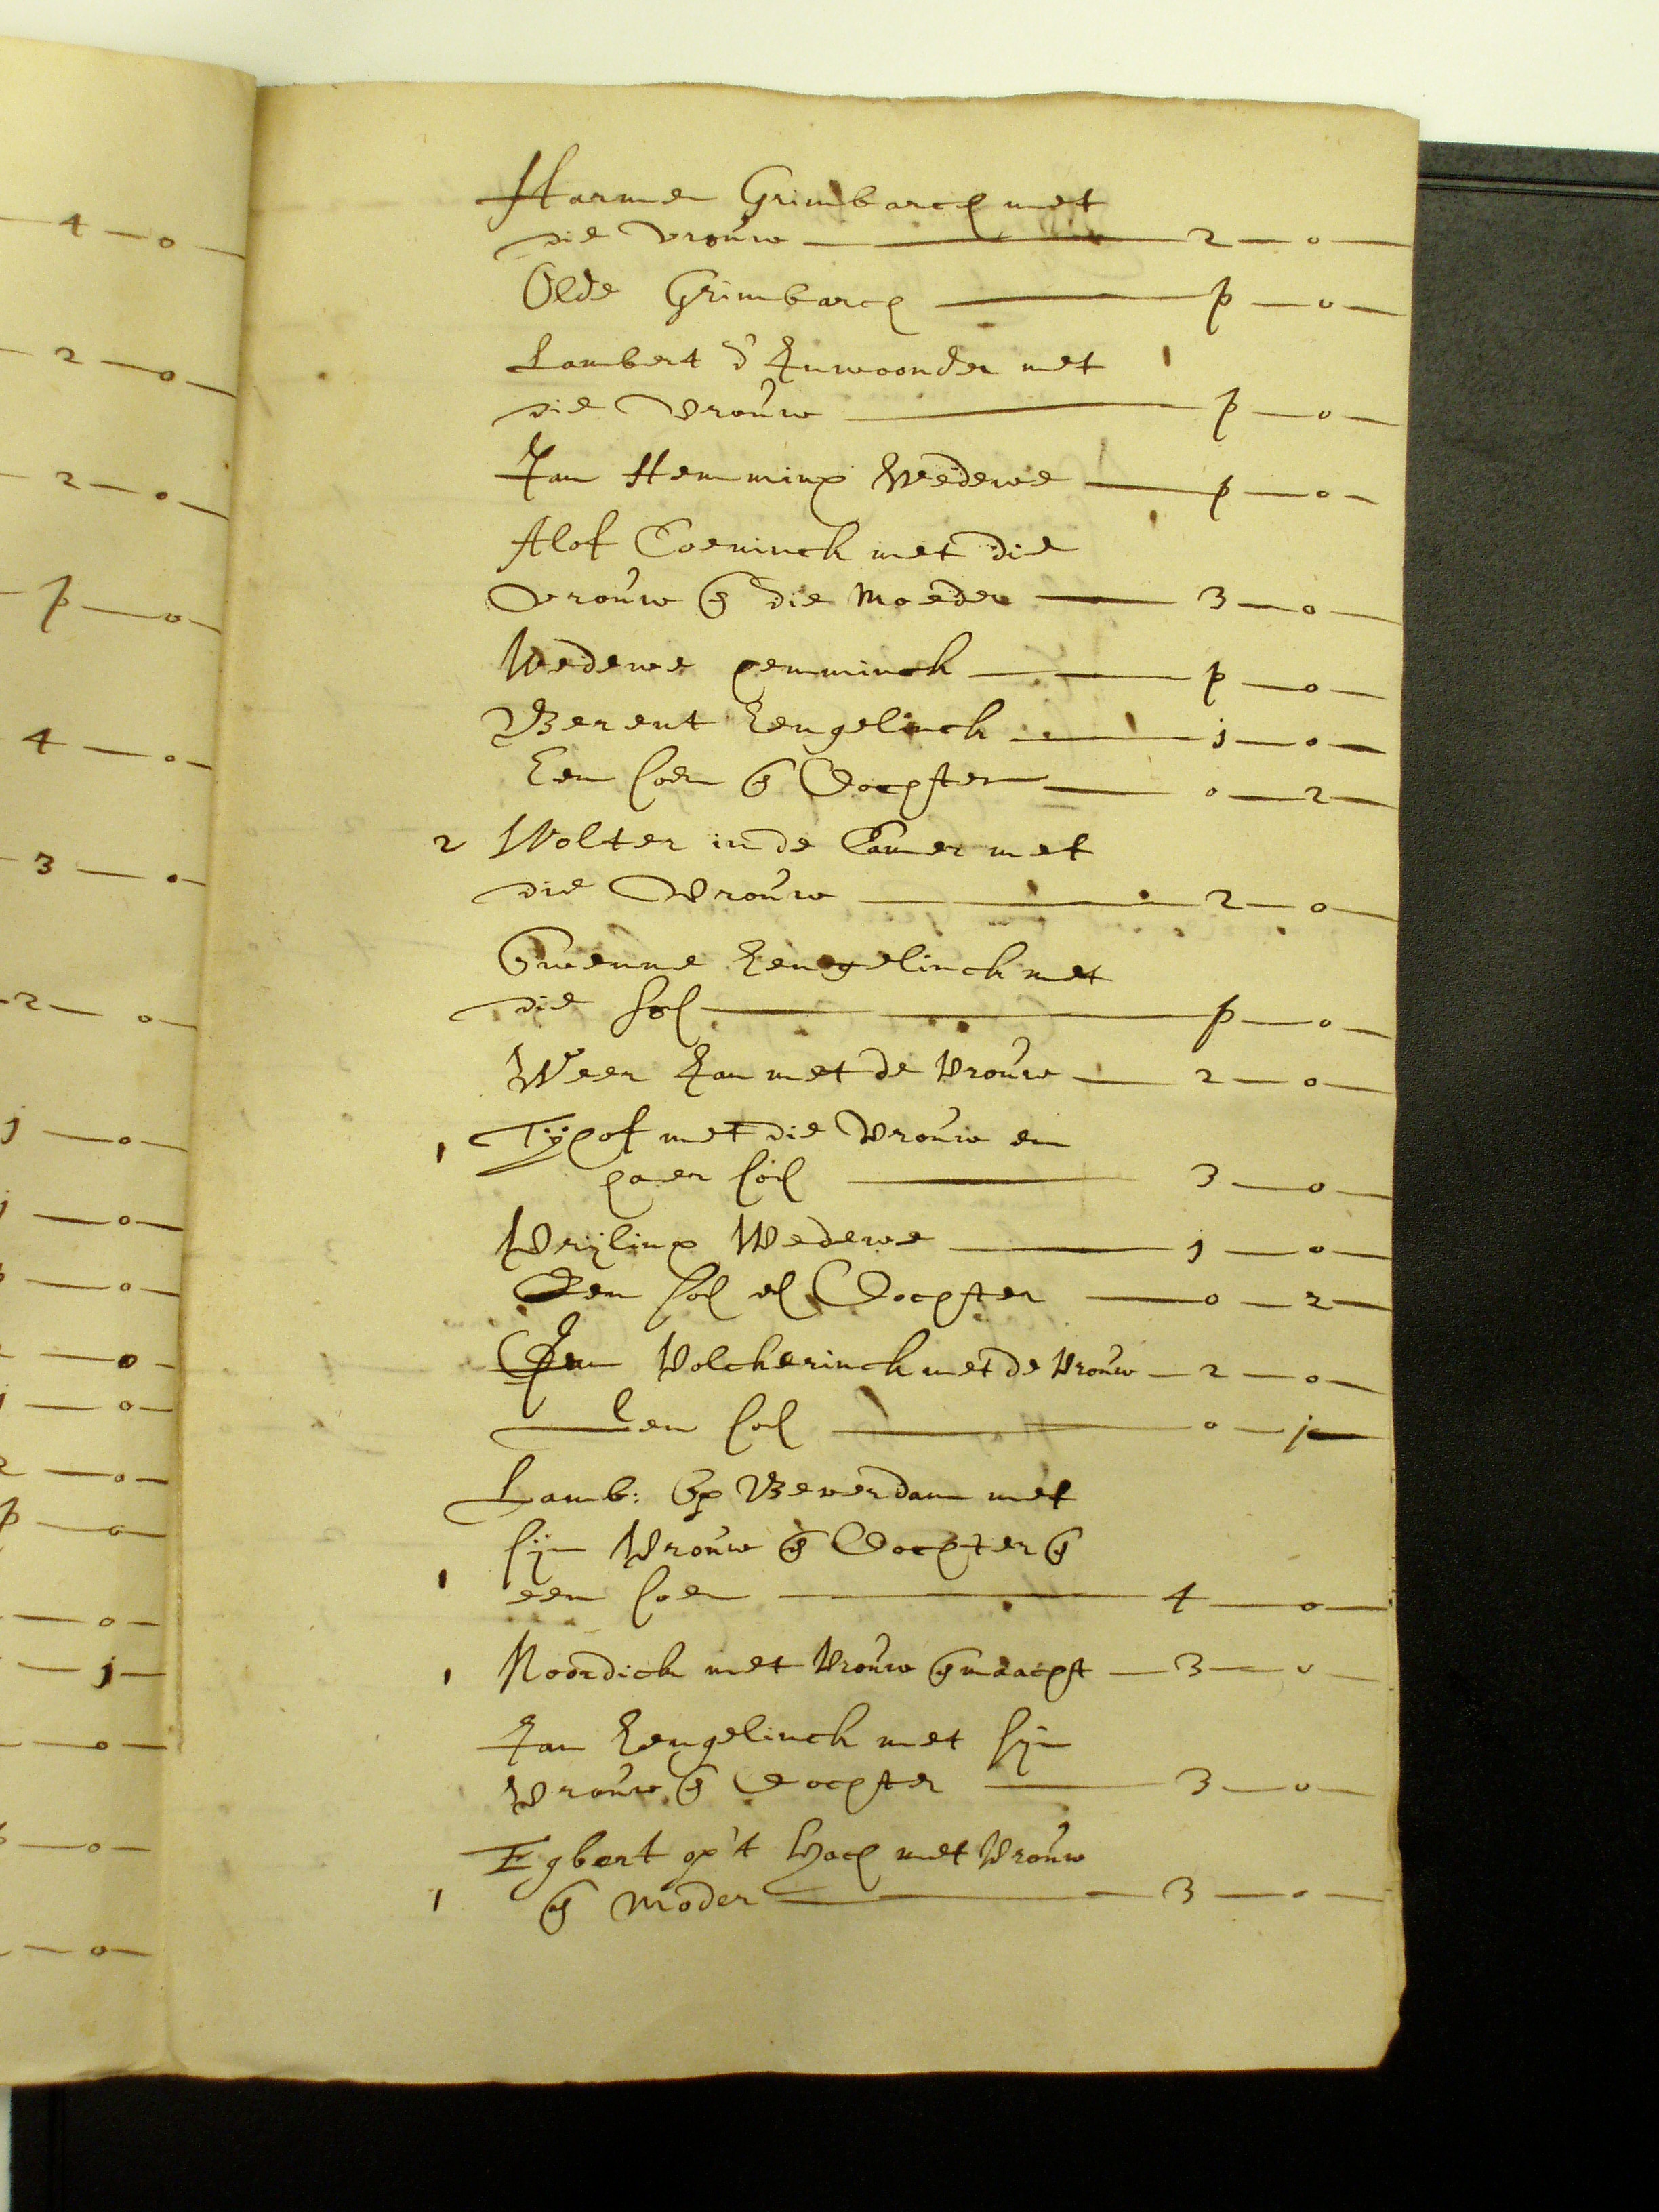 4 — 0 —
2 — 0 —
2 — 0 —
p — 0 —
4 — 0 —
3 — 0 —
2 — 0 —
j — 0 —
j — 0 —
— 0 —
— 0 —
j — 0 —
2 — 0 —
p — 0 —
— 0 —
— j —
— 0 —
— 0 —
— 0 —
Harmen Grimbarch met
die vrouw — 2 — 0 —
Olde Grimbarch — p — 0 —
Lambert d'Inwoonder met
die Vrouw — p — 0 —
Jan Hemminx Wedewe — p — 0 —
Alof Coeninck met die
Vrouw en die Moeder — 3 — 0 —
Wedewe hemminck — p — 0 —
Berent Lengelinck — j — 0 —
Een soen en Dochter — 0 — 2 —
2 Wolter in de Camer met
die Vrouw — 2 — 0 —
Swenne Lengelinck met
die soh — p — 0 —
Weer Jan met de Vrouw — 2 — 0 —
1 Tijhof met die Vrouw en
haer soh — 3 — 0 —
Vrijlinx Wedewe — j — 0 —
Een soh el Dochter — 0 — 2 —
Jan Volckerinck met de Vrouw — 2 — 0 —
Een soh — 0 — j —
Lamb: Op Beverdam met
sijn Vrouw en Dochter en
1 een soen — 4 — 0 —
1 Noordick met Vrouw en maacht — 3 — 0 —
Jan Lengelinck met sijn
Vrouw en Dochter — 3 — 0 —
Egbert op 't hoch met Vrouw
1 en Moder — 3 — 0 —